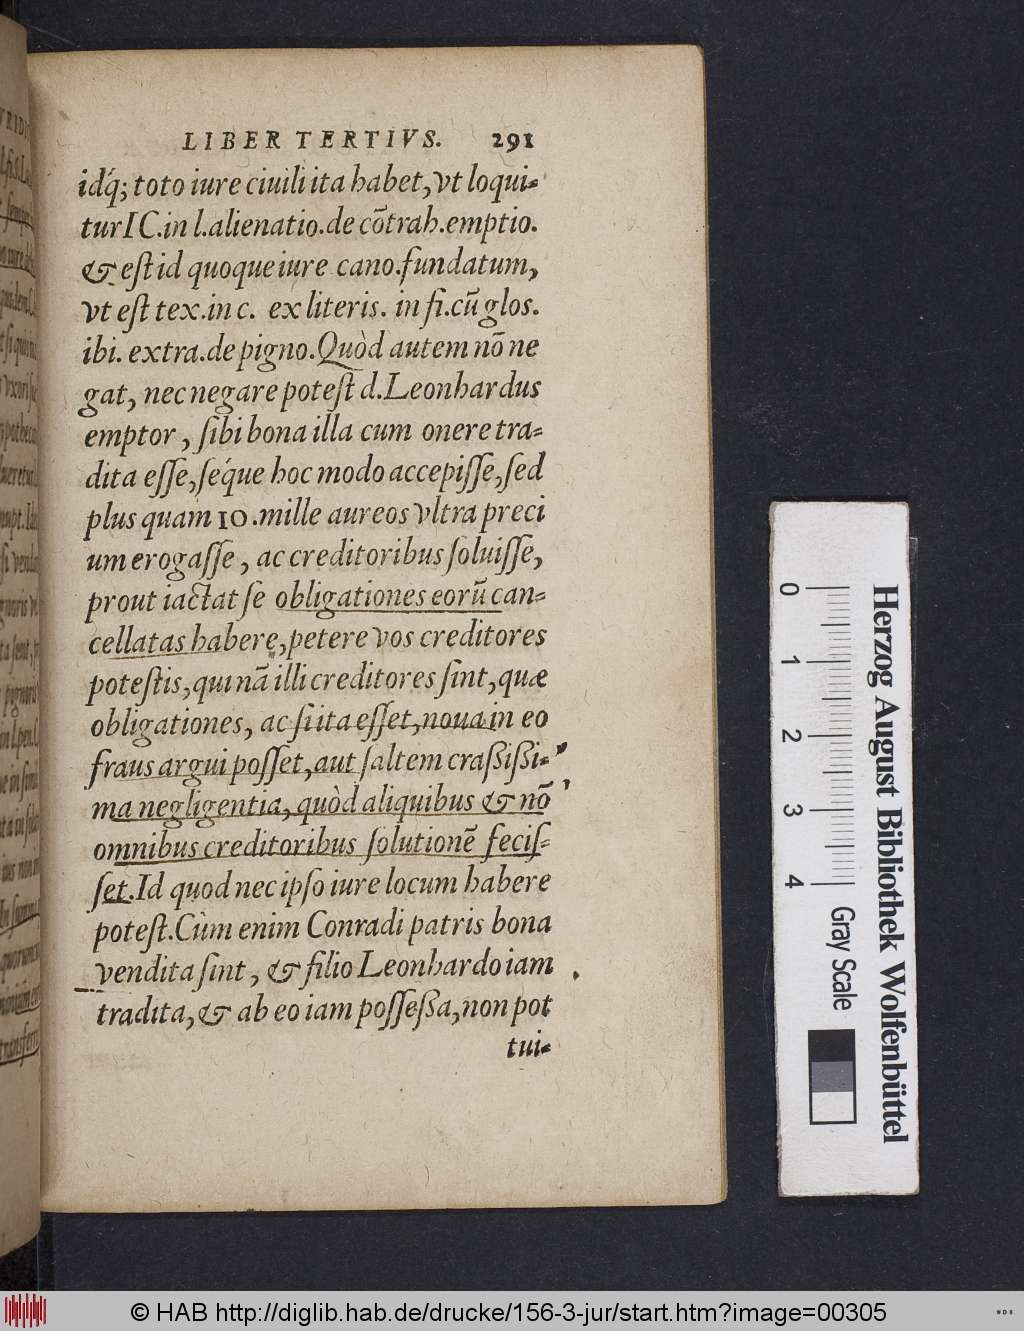 LIBER TERTIVS. 291
idq́; toto iure ciuili ita habet, vt loqui-
tur IC. in l. alienatio. de cōtrah. emptio.
& est id quoque iure cano. fundatum,
vt est tex. in c. ex literis. in fi. cū glos.
ibi. extra. de pigno. Quòd autem nō ne
gat, nec negare potest d. Leonhardus
emptor, sibi bona illa cum onere tra-
dita esse, seq́ue hoc modo accepisse, sed
plus quam 10. mille aureos vltra preci
um erogasse, ac creditoribus soluisse,
prout iactat se obligationes eorū can-
cellatas habere, petere vos creditores
potestis, qui nā illi creditores sint, quæ
obligationes, ac si ita esset, noua in eo
fraus argui posset, aut saltem crassissi-
ma negligentia, quòd aliquibus & nō
omnibus creditoribus solutionē fecis-
set. Id quod nec ipso iure locum habere
potest. Cùm enim Conradi patris bona
vendita sint, & filio Leonhardo iam
tradita, & ab eo iam possessa, non pot
tui-
Herzog August Bibliothek Wolfenbüttel
0 1 2 3 4 Gray Scale
© HAB http://diglib.hab.de/drucke/156-3-jur/start.htm?image=00305